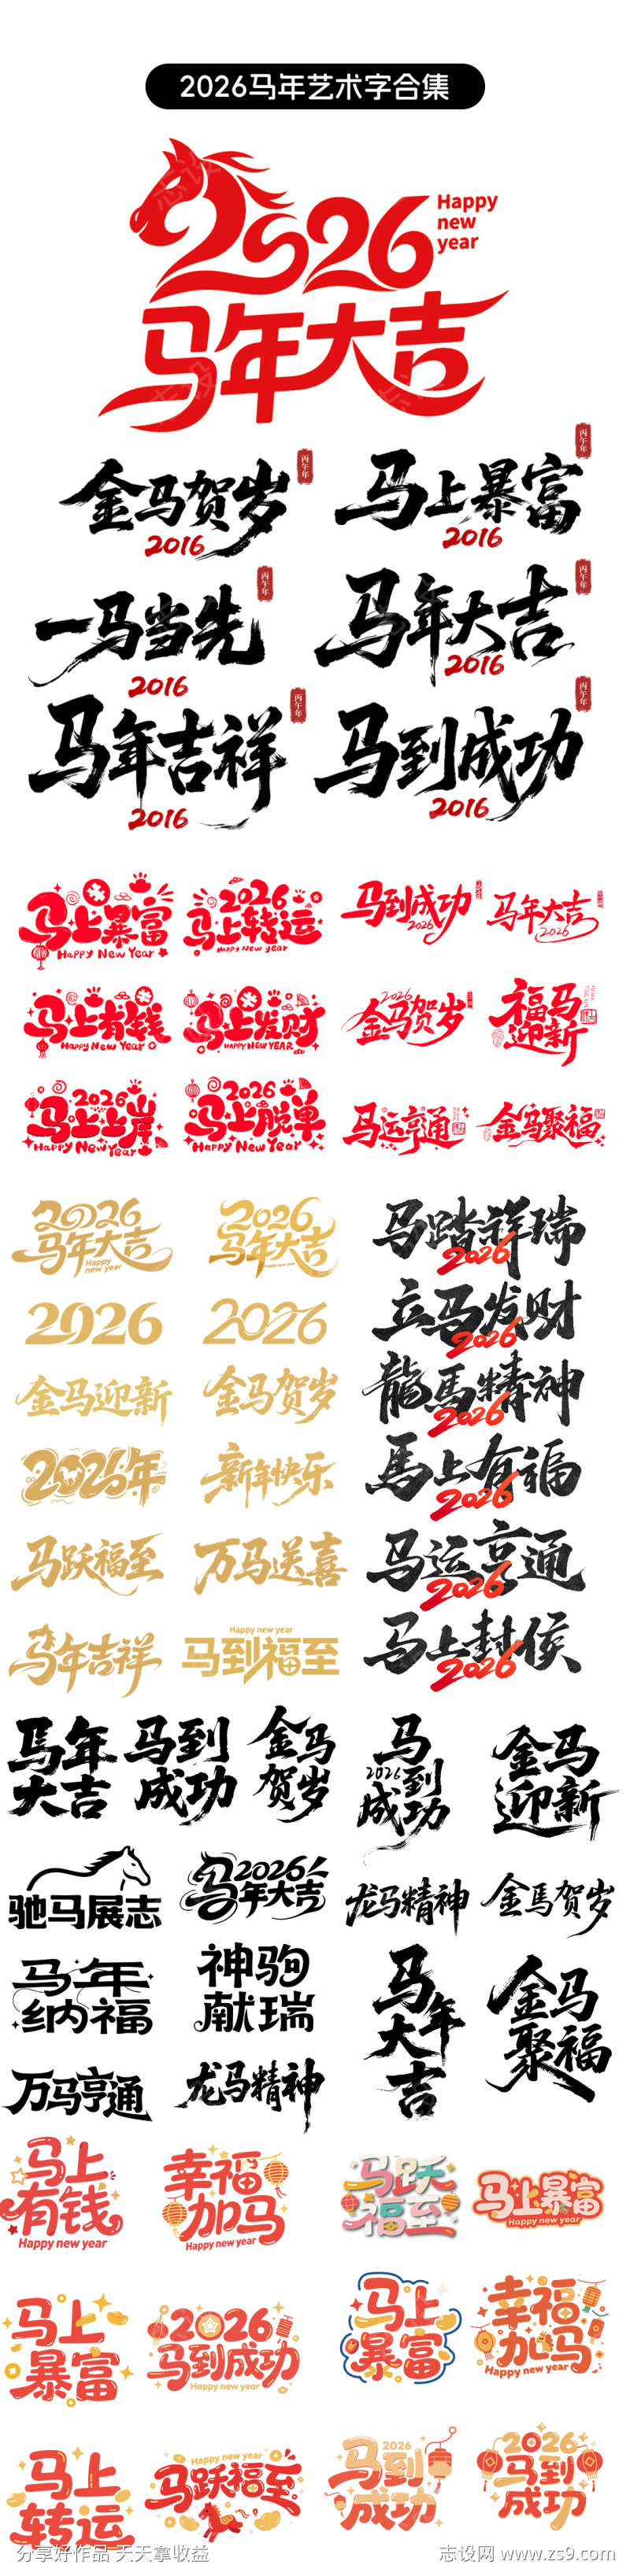 2026马年艺术字合集
2026
Happy
new
year
马年大吉
丙午年
金马贺岁
2016
丙午年
马上暴富
2016
丙午年
一马当先
2016
丙午年
马年大吉
2016
丙午年
马年吉祥
2016
丙午年
马到成功
2016
马上暴富
Happy New Year
2026
马上转运
Happy New year
马到成功
2026
马年大吉
2026
马上有钱
Happy New Year
马上发财
HAPPY NEW YEAR
2026
金马贺岁
福马
迎新
2026
马上上岸
Happy New Year
2026
马上脱单
Happy New Year
马运亨通
金马聚福
2026
马年大吉
Happy
new year
2026
马年大吉
马踏祥瑞
2026
2026
2026
立马发财
2026
金马迎新
金马贺岁
龍馬精神
2026
2026年
新年快乐
馬上有福
2026
马跃福至
万马送喜
马运亨通
2026
马年吉祥
Happy new year
马到福至
马上封侯
2026
馬年
大吉
马到
成功
金马
贺岁
马
2026
到
成功
金马
迎新
驰马展志
2026
马年大吉
龙马精神
金馬贺岁
马年
纳福
神驹
献瑞
马年
大吉
金马
聚福
万马亨通
龙马精神
马上
有钱
Happy new year
幸福
加马
Happy new year
马跃
福至
马上暴富
Happy new year
马上
暴富
2026
马到成功
Happy new year
马上
暴富
幸福
加马
Happy new year
马上
转运
Happy new year
马跃福至
2026
马到
成功
2026
马到
成功
分享好作品 天天拿收益
志设网 www.zs9.com